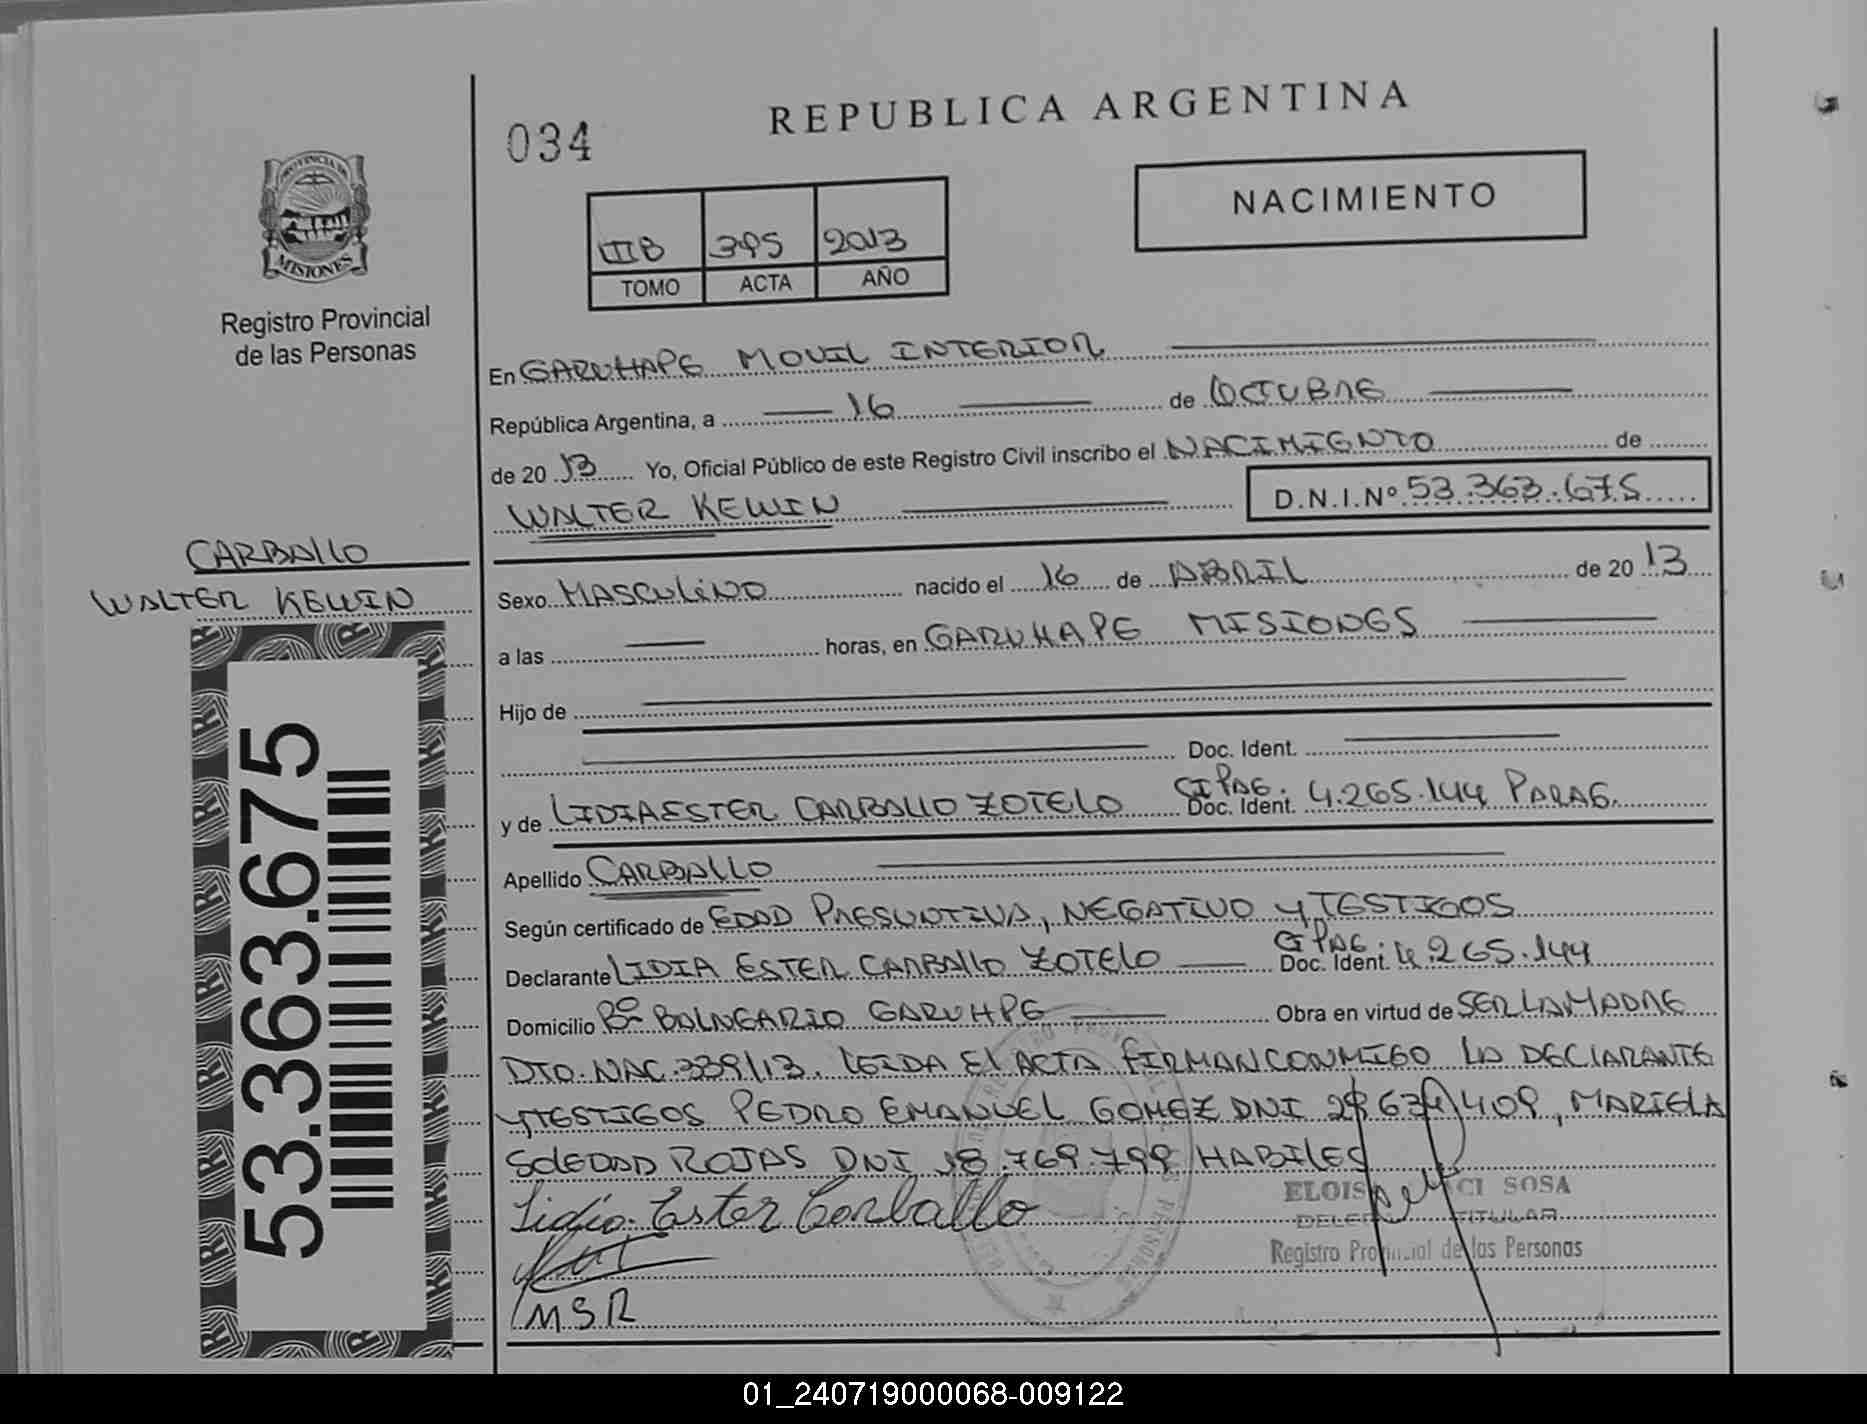 034
REPUBLICA ARGENTINA
NACIMIENTO
IIIB 395 2013
TOMO ACTA AÑO
PROVINCIA DE
MISIONES
Registro Provincial
de las Personas
En GARUHAPE MOVIL INTERIOR
República Argentina, a 16 de OCTUBRE
de 20 13 Yo, Oficial Público de este Registro Civil inscribo el NACIMIENTO de
WALTER KEWIN D.N.I.Nº 53.363.675
CARBALLO
WALTER KEWIN
Sexo MASCULINO nacido el 16 de ABRIL de 20 13
a las horas, en GARUHAPE MISIONES
Hijo de
Doc. Ident.
y de LIDIA ESTER CARBALLO ZOTELO CI PAG. Doc. Ident. 4.265.144 PARAG.
Apellido CARBALLO
Según certificado de EDAD PRESUNTIVA, NEGATIVO Y TESTIGOS
Declarante LIDIA ESTER CARBALLO ZOTELO CI PAG. Doc. Ident. 4.265.144
Domicilio Bº BALNEARIO GARUHPE Obra en virtud de SER LA MADRE
DTO. NAC. 339/13. LEIDA El ACTA FIRMAN CONMIGO LA DECLARANTE
Y TESTIGOS PEDRO EMANUEL GOMEZ DNI 409, MARIELA
SOLEDAD ROJAS DNI 18.769.799 HABILES
Lidia Ester Carballo
ELOIS CI SOSA
TITULAR
Registro Provincial de las Personas
MSR
53.363.675
01_240719000068-009122